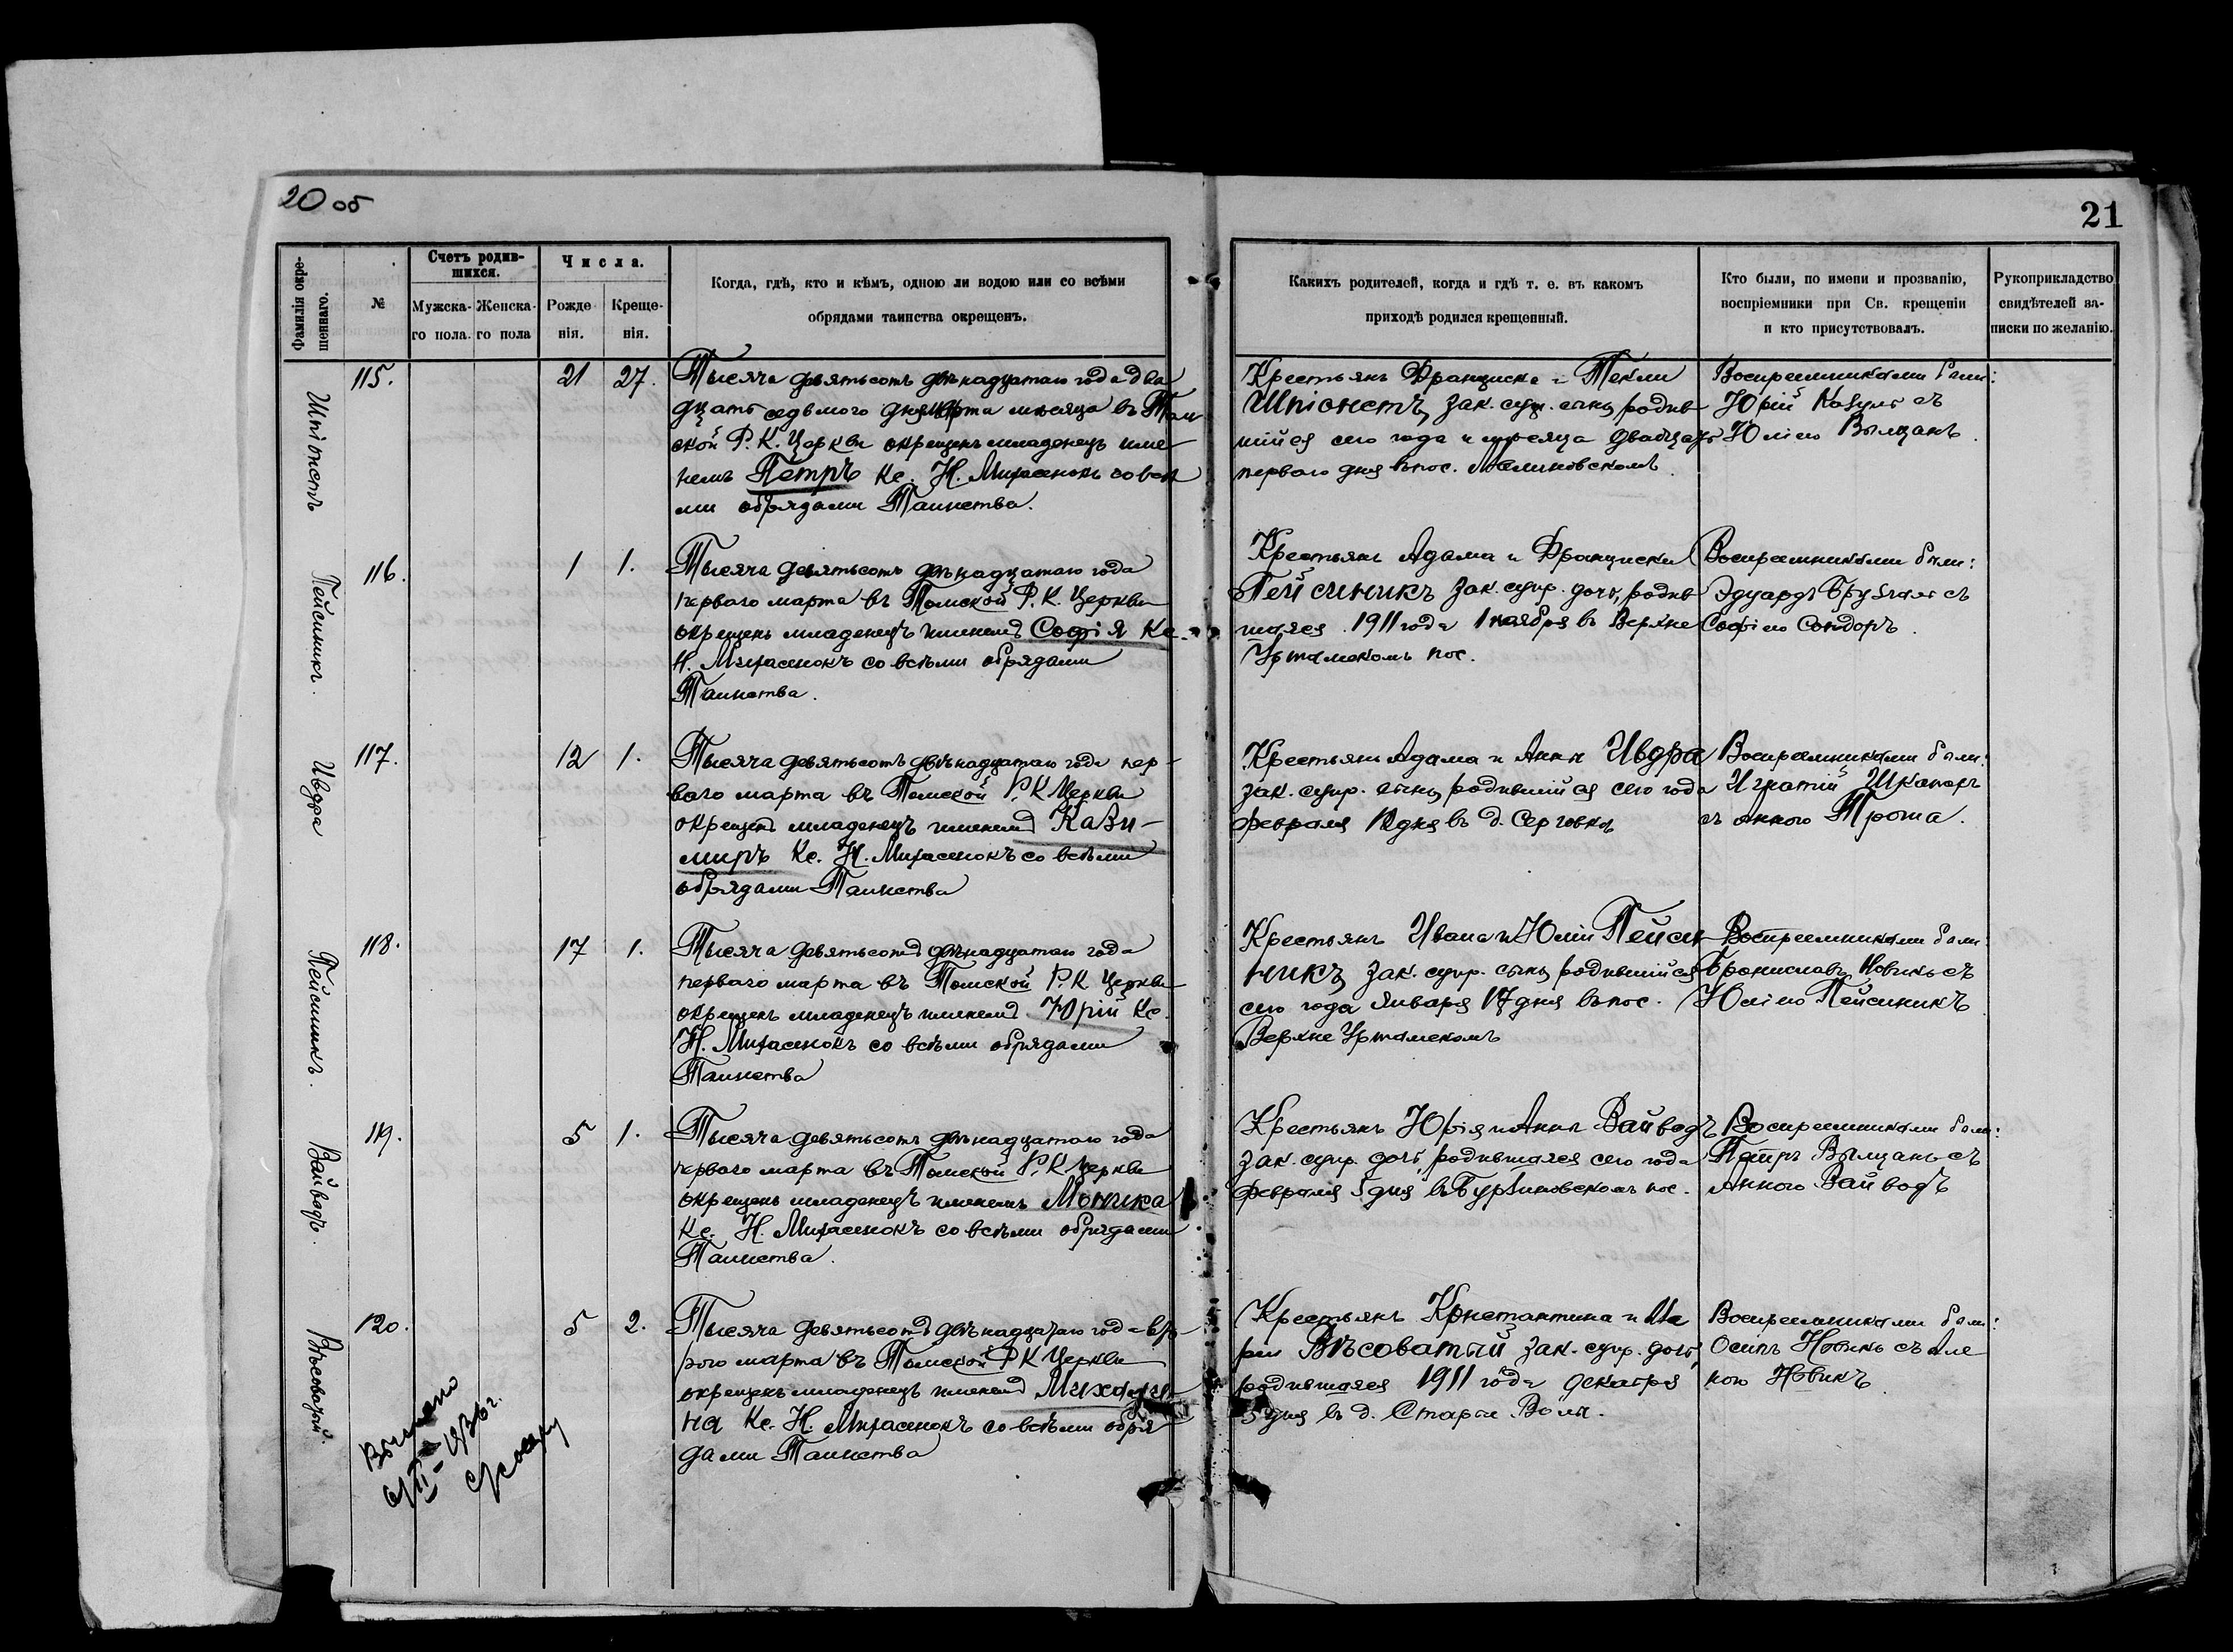 20 об
21
Фамилія окре-
щеннаго.
№
Счетъ родив-
шихся.
Мужска-
го пола.
Женска-
го пола
Числа.
Рожде
нія.
Креще-
нія.
Когда, гдѣ, кто и кѣмъ, одною ли водою или со всѣми
обрядами таинства окрещенъ.
Какихъ родителей, когда и гдѣ т. е. въ какомъ
приходѣ родился крещенный.
Кто были, по имени и прозванію,
воспріемники при Св. крещеніи
и кто присутствовалъ.
Рукоприкладство
свидѣтелей за-
писки по желанію.
Шпіонетъ
115.
21
27.
Тысяча девятьсотъ двѣнадцатаго года два
дцать седьмого дня марта мѣсяца въ Том
ской Р. К. Церкви окрещенъ младенецъ име
немъ Петръ Кс. Н. Михасенокъ со всѣ
ми обрядами Таинства.
Крестьянъ Франциска и Текли
Шпіонетъ, зак. супр. сынъ, родив
шійся сего года и мѣсяца двадцать
перваго дня въ пос. Малиновскомъ.
Воспреемниками были:
Юрій Козулъ съ
Юліею Вылцанъ.
Пейсиникъ.
116.
1
1.
Тысяча девятьсотъ двѣнадцатаго года
перваго марта въ Томской Р. К. Церкви
окрещенъ младенецъ именемъ Софія Кс.
Н. Михасенокъ со всѣми обрядами
Таинства.
Крестьянъ Адама и Франциски
Пейсиникъ зак. супр. дочь, родив
шаяся 1911 года 1 ноября въ Верхне
Уртамскомъ пос.
Воспреемниками были:
Эдуардъ съ
Софіею Сондоръ.
Ивдра
117.
12
1.
Тысяча девятьсотъ двѣнадцатаго года пер-
ваго марта въ Томской Р. К. Церкви
окрещенъ младенецъ именемъ Кази-
миръ Кс. Н. Михасенокъ со всѣми
обрядами Таинства
Крестьянъ Адама и Анны Ивдра
зак. супр. сынъ, родившійся сего года
февраля 12 дня въ д. Серговка
Воспреемниками были:
Игнатій
съ Анною Трота.
Пейсиникъ.
118.
17
1.
Тысяча девятьсотъ двѣнадцатаго года
перваго марта въ Томской Р. К. Церкви
окрещенъ младенецъ именемъ Юрій Кс.
Н. Михасенокъ со всѣми обрядами
Таинства
Крестьянъ Ивана и Юліи Пейси
никъ, зак. супр. сынъ, родившійся
сего года января 17 дня въ пос.
Верхне Уртамскомъ
Воспреемниками были:
Брониславъ Новикъ съ
Юліею Пейсиникъ
Вайводъ.
119.
5
1.
Тысяча девятьсотъ двѣнадцатаго года
перваго марта въ Томской Р. К. Церкви
окрещенъ младенецъ именемъ Моника
Кс. Н. Михасенокъ со всѣми обрядами
Таинства.
Крестьянъ Юрія и Анны Вайводъ
зак. супр. дочь, родившаяся сего года
февраля 5 дня въ Бурбиновскомъ пос.
Воспреемниками были:
Петръ Вылцанъ съ
Анною Вайводъ
Вѣсоватый.
120.
5
2.
Тысяча девятьсотъ двѣнадцатаго года вто-
рого марта въ Томской Р. К. Церкви
окрещенъ младенецъ именемъ Михали
на Кс. Н. Михасенокъ со всѣми обря
дами Таинства
Крестьянъ Константина и Ма
ріи Вѣсоватый зак. супр. дочь,
родившаяся 1911 года декабря
5 дня въ д. Старая Воля.
Воспреемниками были:
Осипъ Новикъ съ Але
ною Новикъ